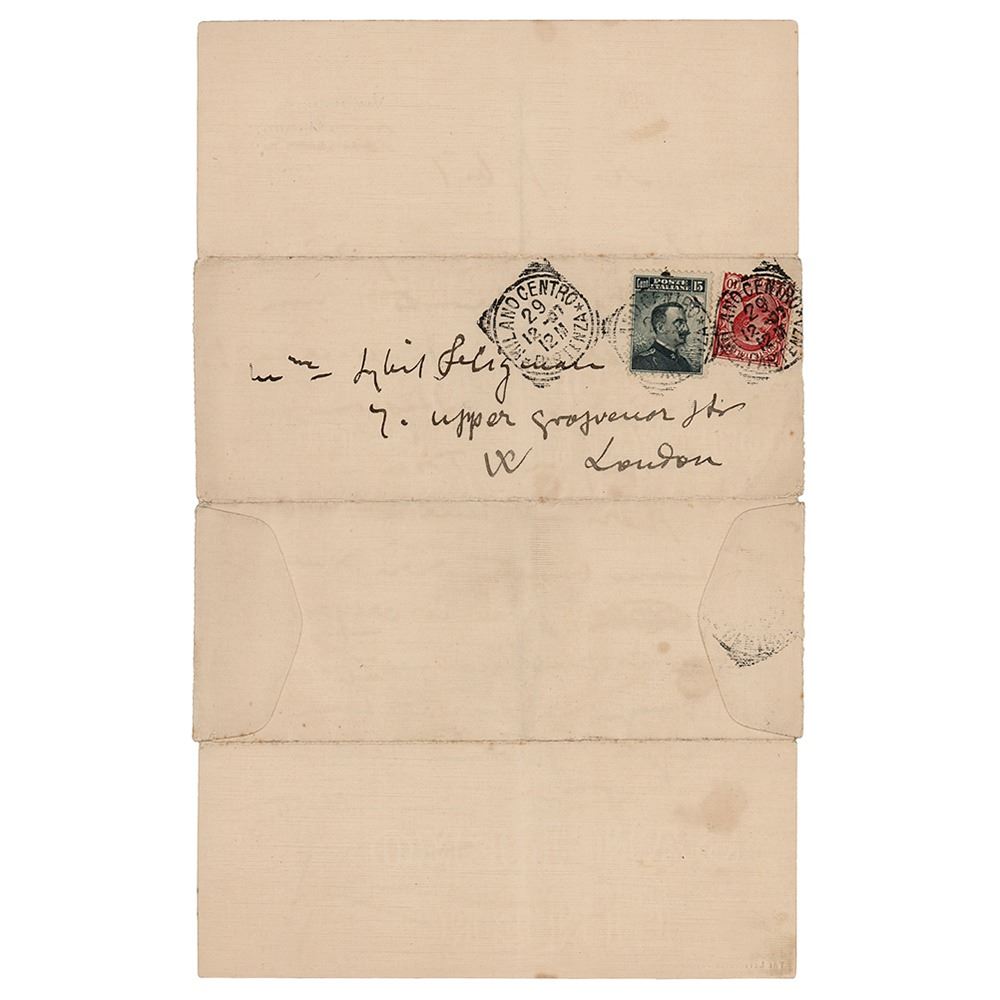 MILANO CENTRO * PARTENZA
29
12M
Cent. POSTE ITALIANE 15
MILANO CENTRO * PARTENZA
Mrs Sybil Seligman
7. upper grosvenor str
W London